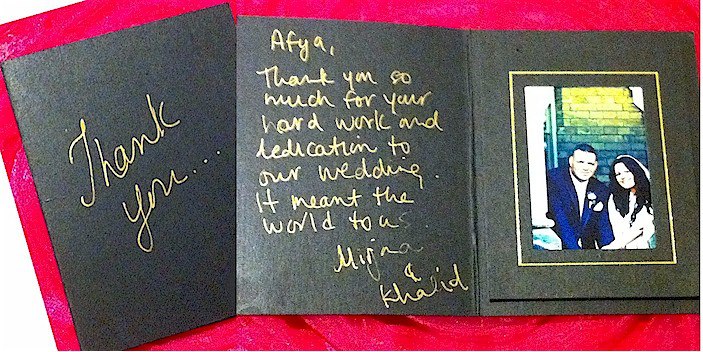 Thank
you...
Afya,
Thank you so
much for your
hard work and
dedication to
our wedding.
It meant the
world to us.
Mirjna
&
Khalid